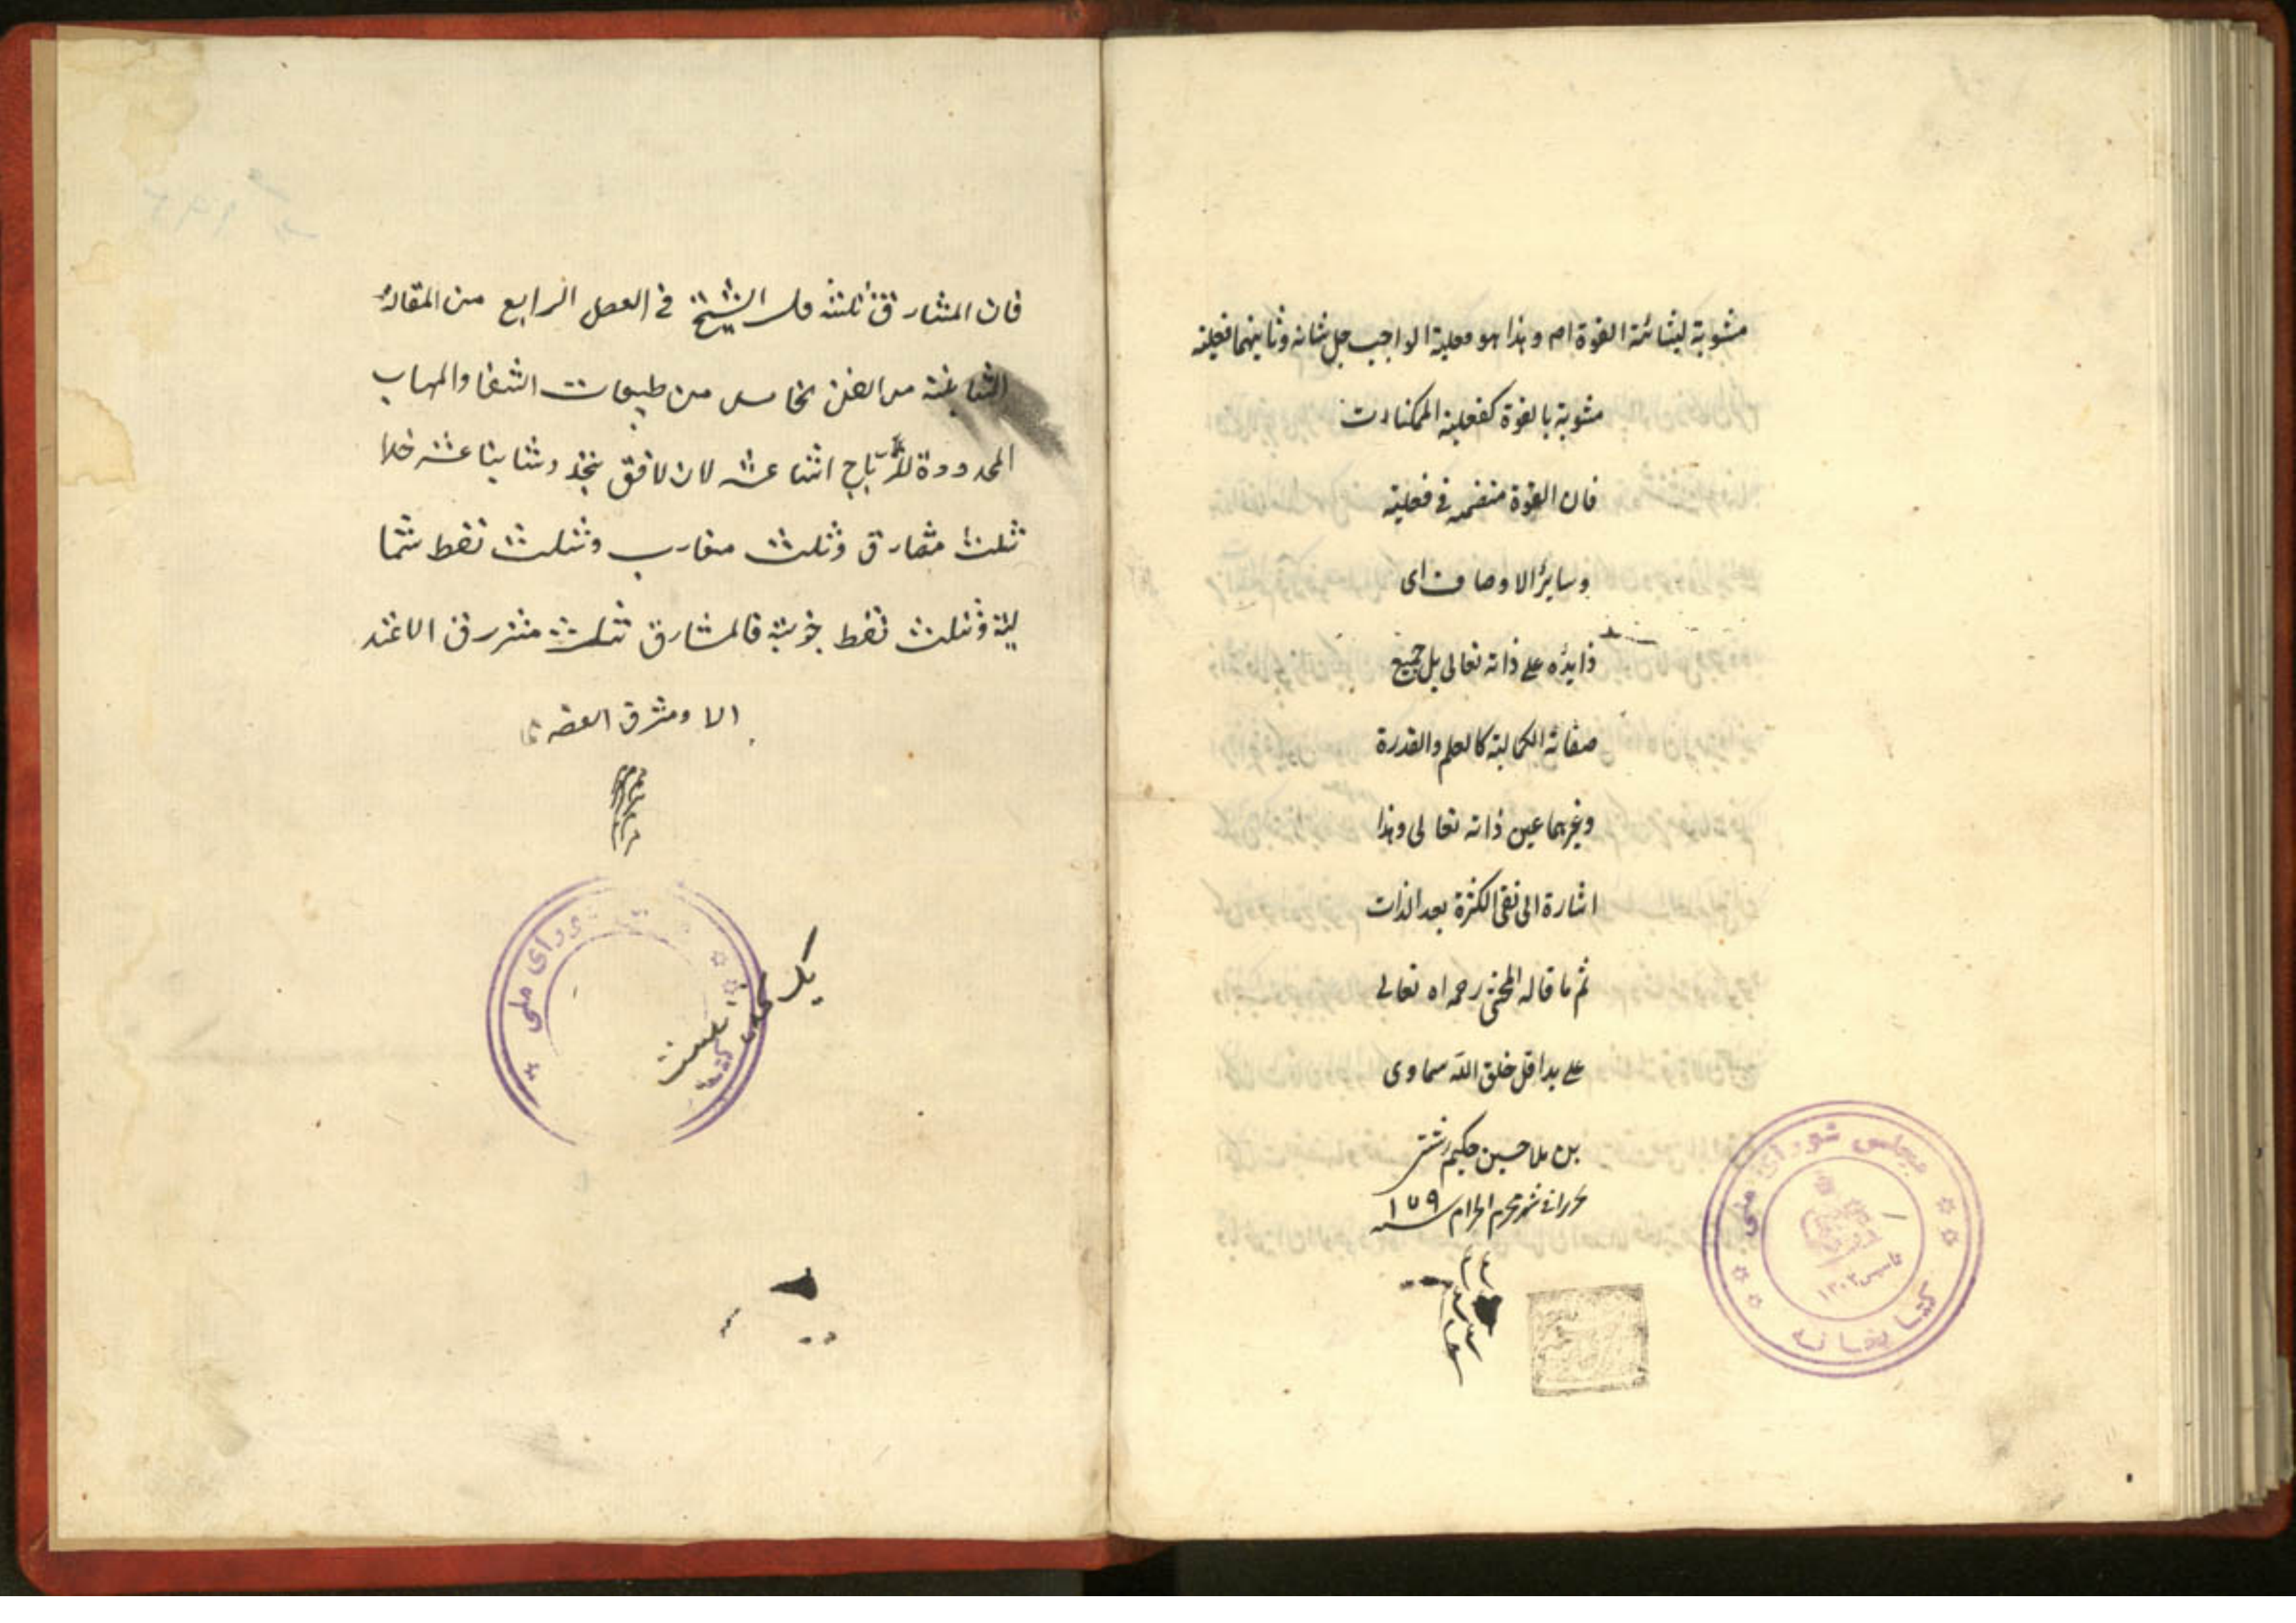 مشوبة بشائبة القوة ام وهذا هو فعلية الواجب جل شانه وثانيهما فعلية
مشوبة بالقوة كفعلية الممكنات
فان القوة منضمة فى فعلية
وسايرالاوصاف اى
زايدة على ذاته تعالى بل جميع
صفاته الكمالية كالعلم والقدرة
وغيرهما عين ذاته تعالى وهذا
اشارة الى نفى الكثرة بعد الذات
ثم ما قاله المحشى رحمه اه تعالى
على يد اقل خلق الله سماوى
بن ملا حسين حكيم رشتى
شهر محرم الحرام سنه ١٧٩
مجلس شوراى ملى
كتابخانه
تاسيس ١٣٠٢
فان المشارق ثلثة قال الشيخ فى الفصل الرابع من المقالة
الثانية من الفن الخامس من طبيعات الشفا والمهاب
المحدودة للرياح اثنا عشر لان الافق يتحدد باثنا عشر حدا
ثلث مشارق وثلث مغارب وثلث نقط شما
لية وثلث نقط جنوبية فالمشارق ثلث مشرق الاعتد
الا ومشرق
وراى ملى
يك